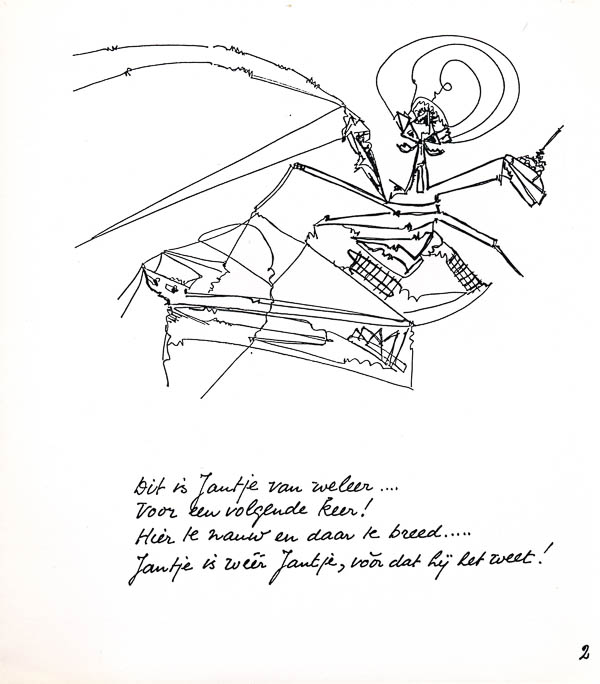 Dit is Jantje van weleer....
Voor een volgende keer!
Hier te nauw en daar te breed.....
Jantje is wéér Jantje, vóor dat hij het weet!
2